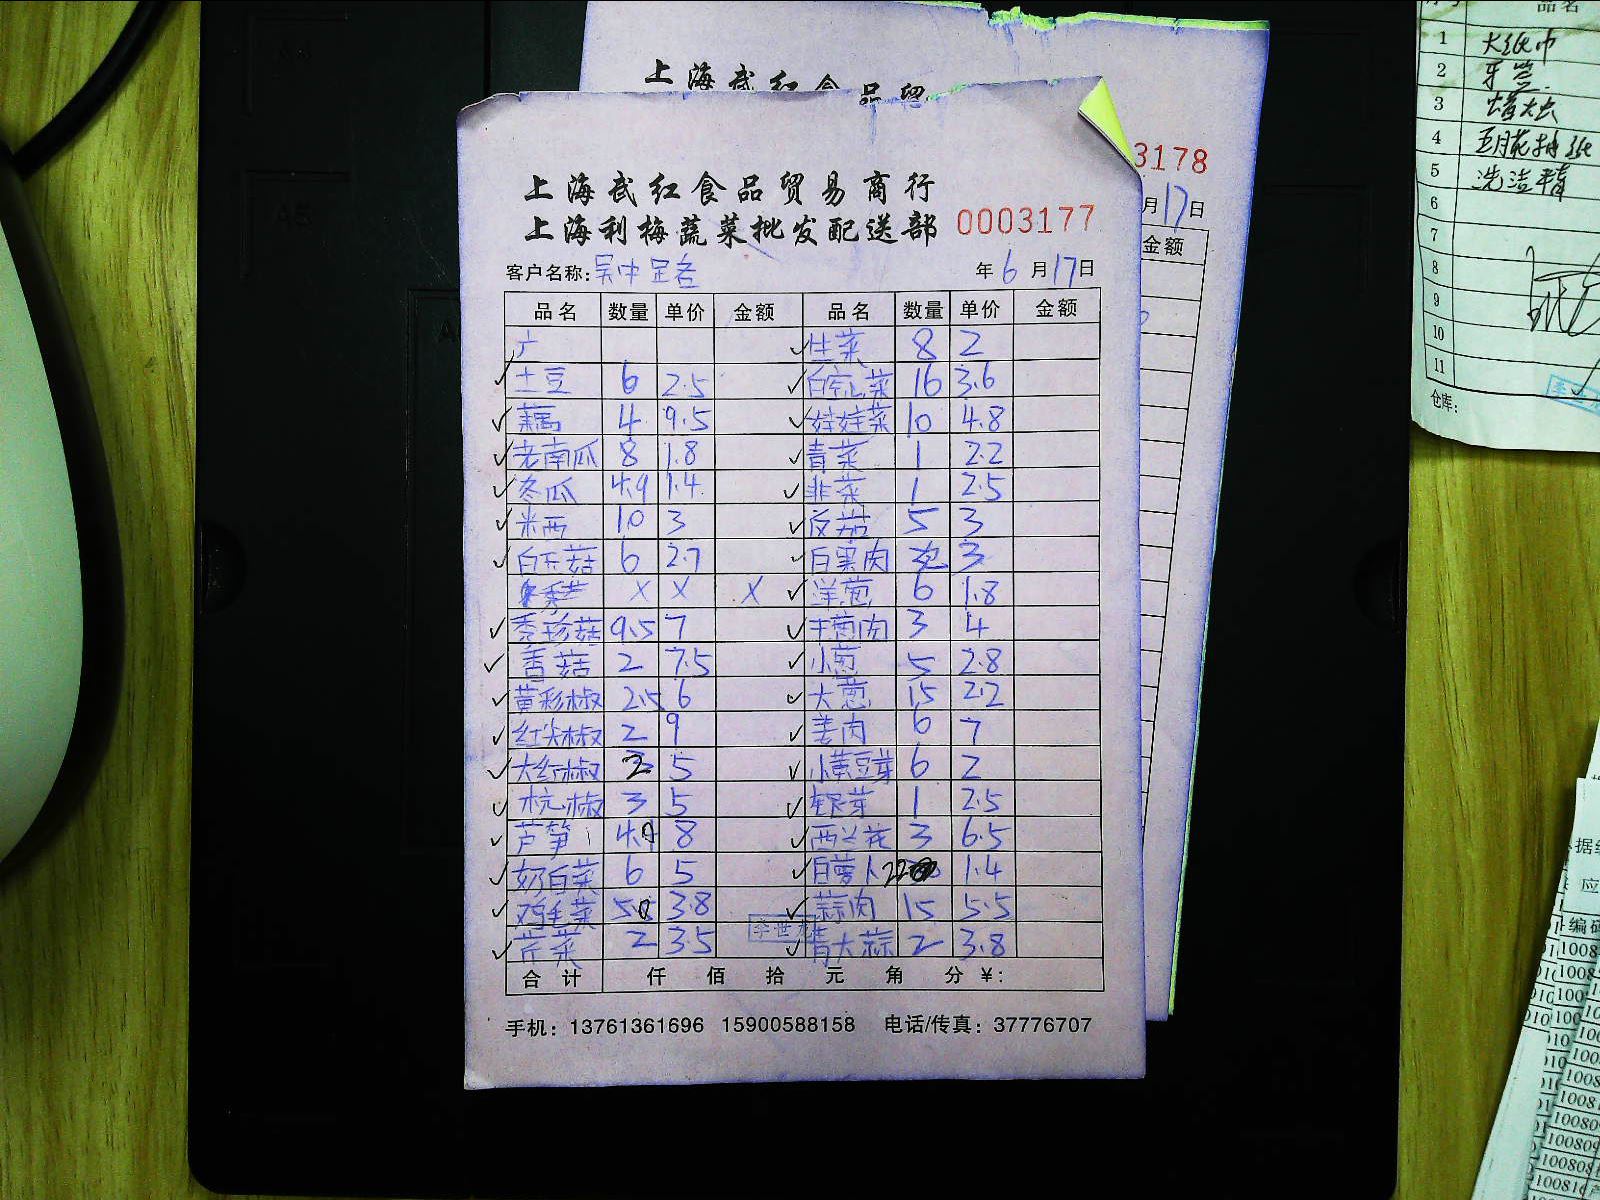 上海武红食品贸
3178
月17日
金额
上海武红食品贸易商行
上海利梅蔬菜批发配送部 0003177
客户名称:吴中 年6月17日
品名 数量 单价 金额 品名 数量 单价 金额
生菜 8 2
土豆 6 2.5 白宝心菜 16 3.6
藕 4 9.5 娃娃菜 10 4.8
老南瓜 8 1.8 青菜 1 2.2
冬瓜 4.9 1.4 韭菜 1 2.5
米西 10 3 反茄 5 3
白玉菇 6 2.7 白果肉 3
X X X 洋葱 6 1.8
秀珍菇 9.5 7 牛葡肉 3 4
香菇 2 7.5 小葱 5 2.8
黄彩椒 2.5 6 大葱 15 2.2
红尖椒 2 9 姜肉 6 7
大红椒 5 小黄豆芽 6 2
杭椒 3 5 银芽 1 2.5
芦笋 4.9 8 西兰花 3 6.5
奶白菜 6 5 白萝卜 22 1.4
鸡毛菜 3.8 蒜肉 15 5.5
芹菜 2 3.5 青大蒜 2 3.8
李世龙
合计 仟 佰 拾 元 角 分 ¥:
手机: 13761361696 15900588158 电话/传真: 37776707
品名
1 大纸巾
2 牙签
3
4 五月花抽纸
5 洗洁精
6
7
8
9
10
11
仓库:
据编
应
编码